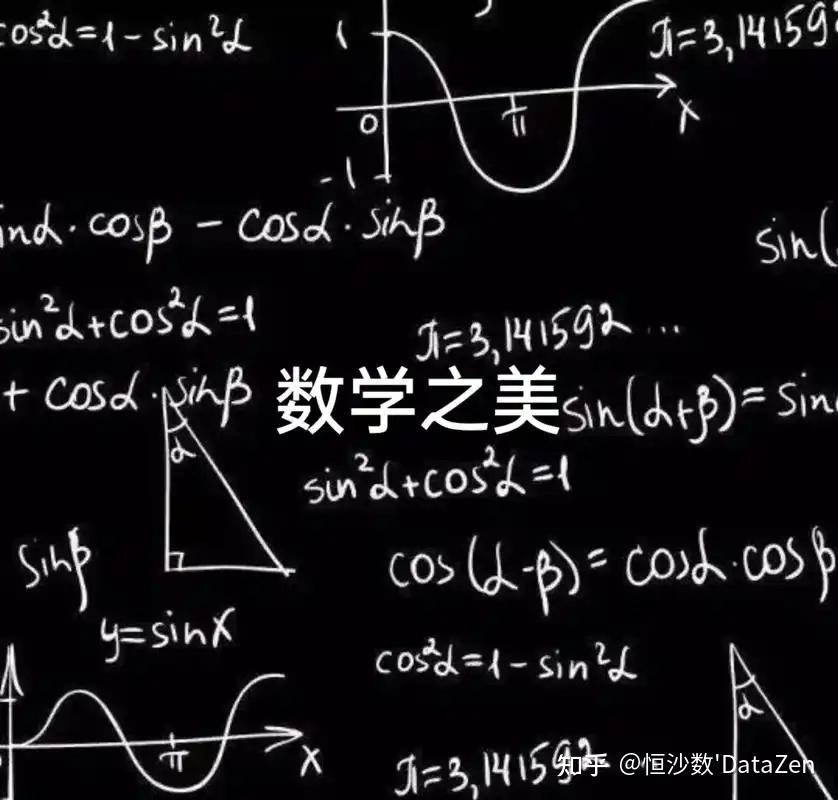 cos²α=1-sin²α
1
π=3,14159
0
π
x
-1
inα·cosβ - cosα·sinβ
sin(
sin²α+cos²α=1
π=3,141592...
+ cosα·sinβ
数学之美
sin(α+β)= sin
α
sin²α+cos²α=1
sinβ
cos(α-β)= cosα·cosβ
y=sinx
cos²α=1-sin²α
α
π
x
π=3,141592
知乎 @恒沙数'DataZen